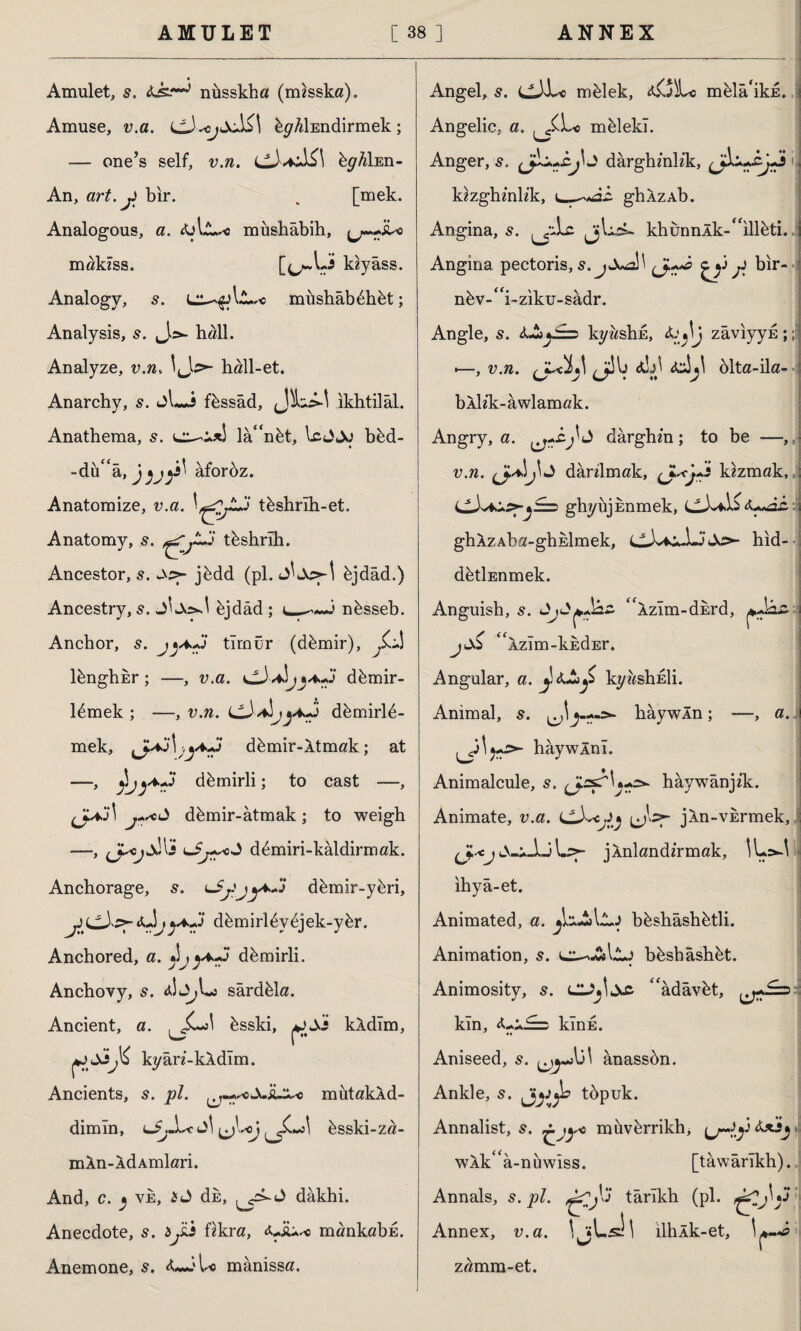 AMULET [ 38 ] ANNEX
Amulet, s. نسخه nùsskha (mìsska).
Amuse, v.a. اكلندیرمك èghlEndirmek;
— one’s self, v.n. اكلنمك èghlEn-
An, art. بر bìr. [mek.
Analogous, a. مشابه mùshābih, مقیس
makīss. [قیاس kìyāss.
Analogy, s. مشابهت mùshābéhèt;
Analysis, s. حل hall.
Analyze, v.n. حل ا hall-et.
Anarchy, s. فساد fèssād, اختلال ikhtilāl.
Anathema, s. لعنت là‘‘nèt, بددعا bèd-
-dù‘‘ā, افوروز àforòz.
Anatomize, v.a. تشریح ا tèshrīh-et.
Anatomy, s. تشریح tèshrīh.
Ancestor, s. جد jèdd (pl. اجداد èjdād.)
Ancestry, s. اجداد èjdād; نسب nèsseb.
Anchor, s. تیمور tīmūr (dèmir), لنكر
lènghEr; —, v.a. تیمورلمك dèmir-
lémek; —, v.n. تیمورلمك dèmirlé-
mek, تیموراتمق dèmir-Atmak; at
—, تیمورلی dèmirli; to cast —,
دمیر اتمق dèmir-àtmak; to weigh
—, دمیری قالدیرمق démiri-kàldirmak.
Anchorage, s. تیموریری dèmir-yèri,
تیمورلیه‌جك یر dèmirléyéjek-yèr.
Anchored, a. تیمورلی dèmirli.
Anchovy, s. ساردله sārdèla.
Ancient, a. اسكی èsski, قدیم kAdīm,
كارقدیم kyāri-kAdīm.
Ancients, s. pl. متقدمین mùtakAd-
dimīn, اسكی زمان ادملری èsski-za-
mAn-AdAmlari.
And, c. و vE, ده dE, دخی dàkhi.
Anecdote, s. فقره fìkra, منقبه mankabE.
Anemone, s. مانسه mànissa.
Angel, s. ملك mèlek, ملائكه mèlā‘ikE.
Angelic, a. ملكی mèlekī.
Anger, s. دارغینلق dàrghìnlìk, قیزغینلق
kìzghìnlìk, غضب ghAzAb.
Angina, s. خناق علتی khùnnAk-‘‘illèti.
Angina pectoris, s. بر نوع ضیق الصدر bìr-
nèv-‘‘i-zìku-sàdr.
Angle, s. كوشه kyùshE, زاویه zāvìyyE;
—, v.n. اولته ایله بالق اولامق òlta-ila-
bAlìk-àwlamak.
Angry, a. دارغین dàrghìn; to be —,
v.n. دارلمق dàrìlmak, قیزمق kìzmak,
كوجنمك ghyùjEnmek, غضبه كلمك
ghAzAba-ghElmek, حدتلنمك hid-
dètlEnmek.
Anguish, s. عظیم درد ‘‘Azīm-dErd, عظیم
كدر ‘‘Azīm-kEdEr.
Angular, a. كوشه‌لی kyùshEli.
Animal, s. حیوان hàywAn; —, a.
حیوانی hàywAnī.
Animalcule, s. حیوانجق hàywānjìk.
Animate, v.a. جان ویرمك jAn-vErmek,
جانلندیرمق jAnlandìrmak, احیا ا
ìhyā-et.
Animated, a. بشاشتلی bèshāshètli.
Animation, s. بشاشت bèshāshèt.
Animosity, s. عداوت ‘‘àdāvèt, كین
kīn, كینه kīnE.
Aniseed, s. اناسون ànassòn.
Ankle, s. طوپوق tòpuk.
Annalist, s. مورخ mùvèrrikh, وقعه نویس
wAk‘‘à-nùwīss. [tàwārīkh).
Annals, s. pl. تاریخ tārīkh (pl. تواریخ
Annex, v.a. الحاق ا ilhAk-et, ضم ا
zamm-et.